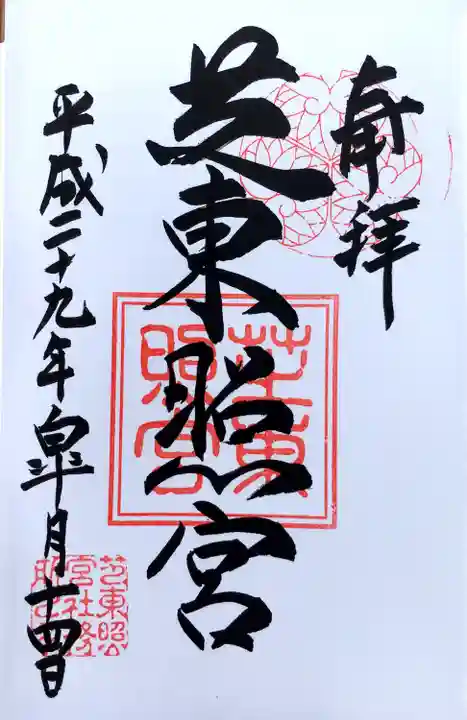 奉拝
芝東照宮
平成二十九年皐月十四日
芝東
照宮
芝東照
宮社務
所之印